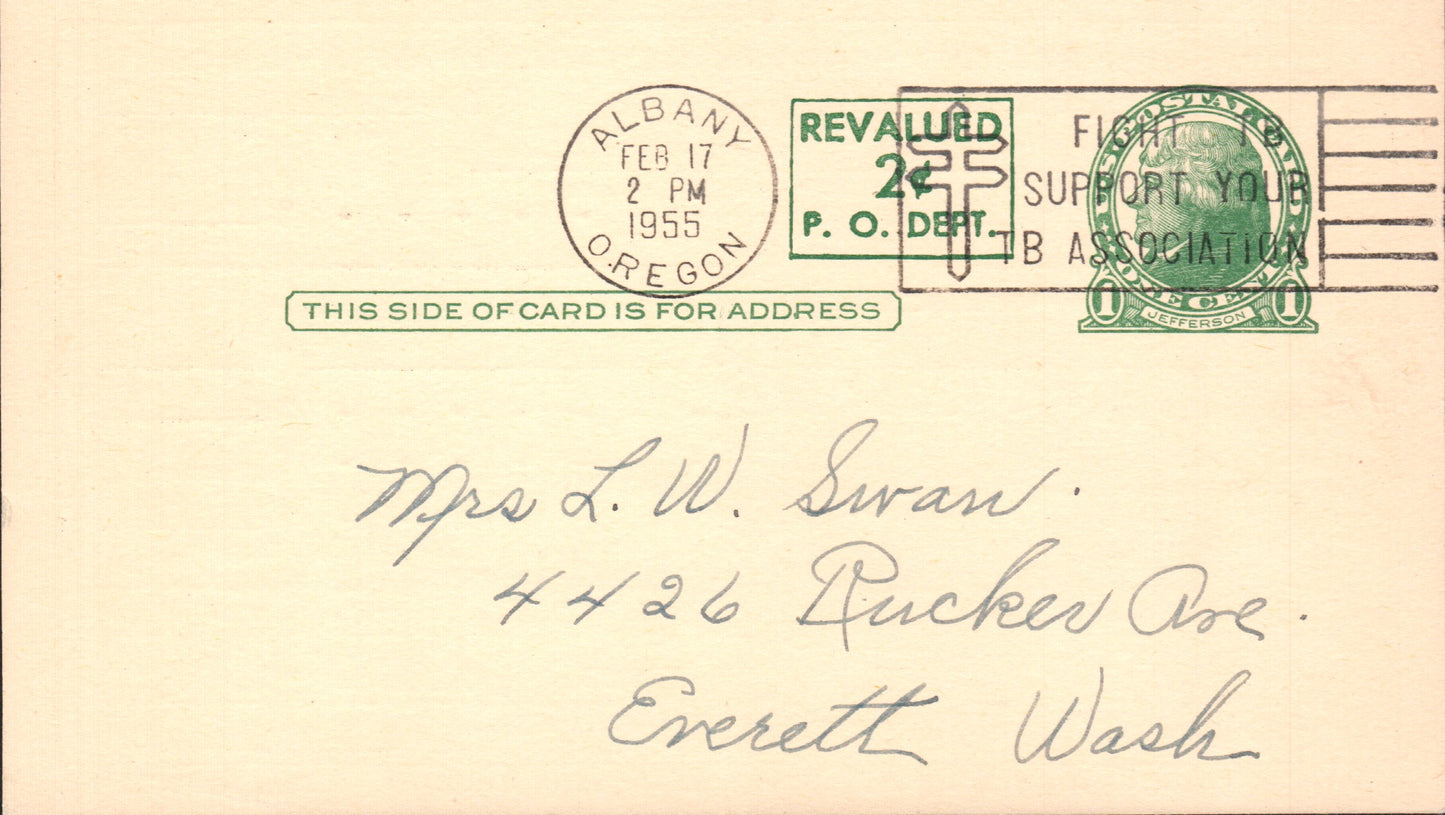 ALBANY
FEB 17
2 PM
1955
OREGON
REVALUED
2¢
P. O. DEPT.
FIGHT TB
SUPPORT YOUR
TB ASSOCIATION
U.S. POSTAL CARD
1 ONE CENT 1
JEFFERSON
THIS SIDE OF CARD IS FOR ADDRESS
Mrs L. W. Swan.
4426 Rucker Ave.
Everett Wash